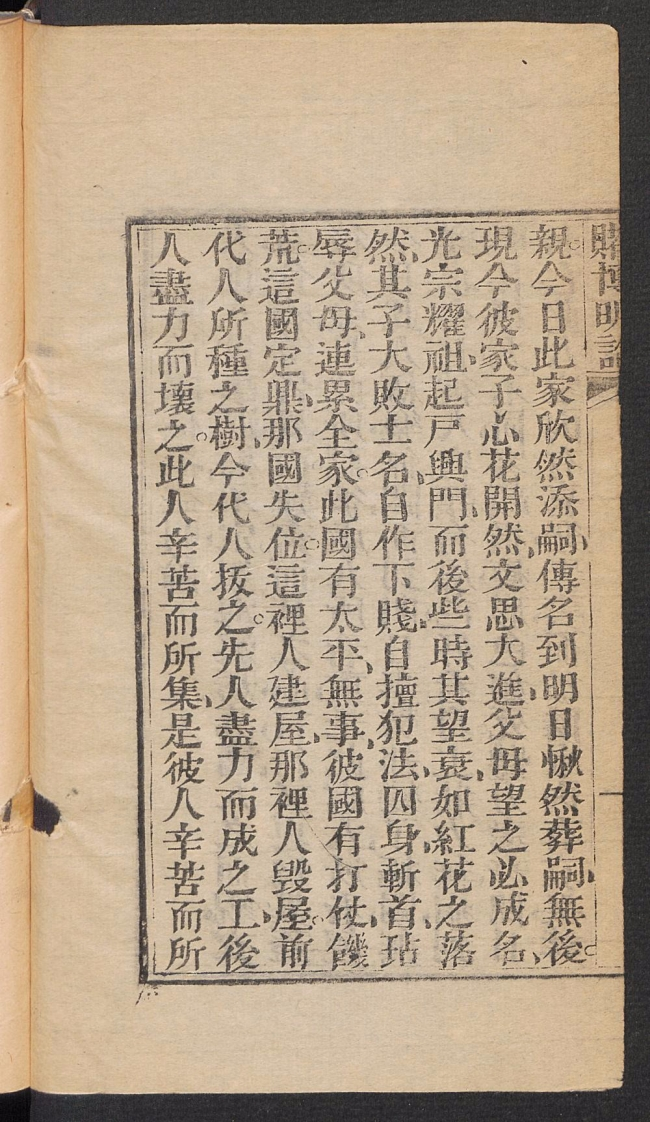 賭博明論
親今日此家欣然添嗣、傳名到明日愀然葬嗣、無後。
現今彼家子心花開然、文思大進、父母望之必成名、
光宗耀祖、起戸興門、而後些時其望衰、如紅花之落
然、其子大敗士名、自作下賤、自擅犯法、囚身、斬首、玷
辱父母、連累全家。此國有太平、無事、彼國有打仗、饑
荒。這國定鼎、那國失位。這裡人建屋、那裡人毀屋。前
代人所種之樹、今代人扳之。先人盡力而成之工、後
人盡力而壞之。此人辛苦而所集、是彼人辛苦而所